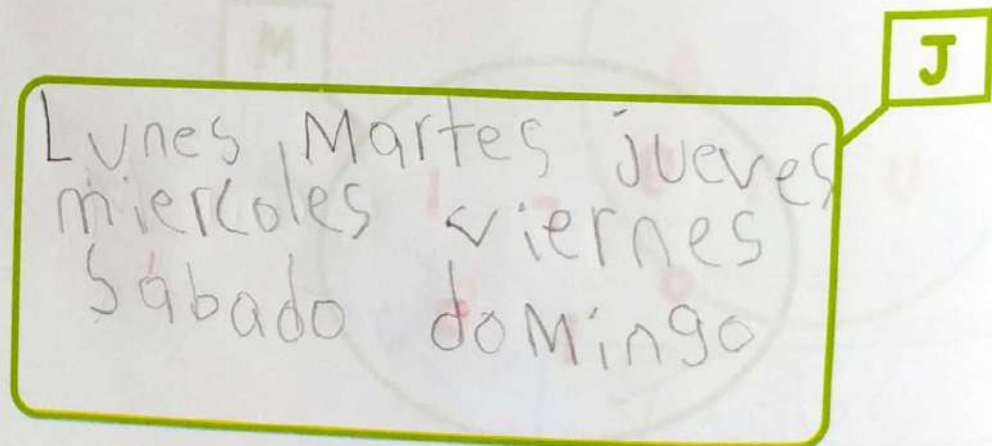 J
Lunes, Martes jueves
miercoles viernes
Sábado doMingo